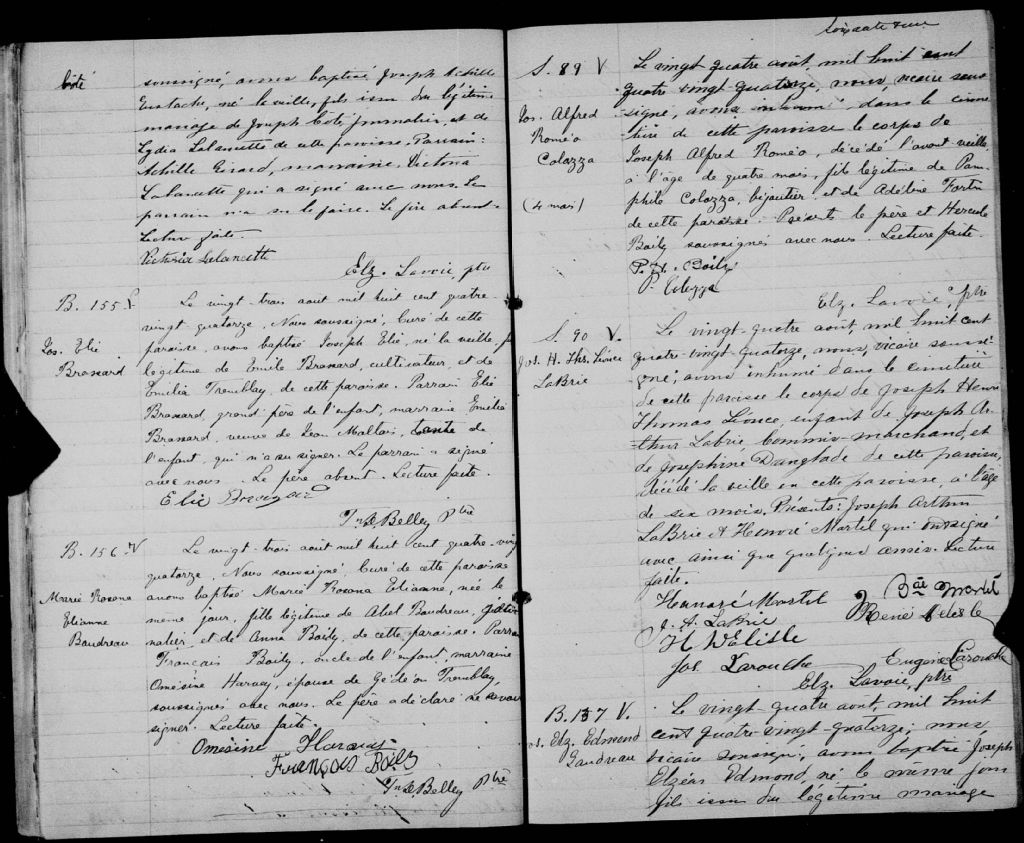 Coté
soussigné, avons baptisé Joseph Achille
Eustache, né la veille, fils issu du légitime
mariage de Joseph Coté, journalier, et de
Lydia Lalancette de cette paroisse. Parrain:
Achille Girard, marraine Victoria
Lalancette qui a signé avec nous. Le
parrain n'a su le faire. Le père absent.
Lecture faite.
Victoria Lalancette
Elz. Lavoie, ptre
B. 155
Jos. Elie
Brassard
Le vingt-trois aout mil huit cent quatre
vingt quatorze, Nous soussigné, Curé de cette
paroisse, avons baptisé Joseph Elie, né la veille, f
légitime de Emile Brassard, cultivateur, et de
Emilia Tremblay, de cette paroisse. Parrain Elie
Brassard, grand père de l'enfant, marraine Emélie
Brassard, veuve de Jean Maltais, tante de
l'enfant, qui n'a su signer. Le parrain a signé
avec nous. Le père absent. Lecture faite.
Elie
Belley Ptre
B. 156 V
Marie Rosana
Elianne
Boudreau
Le vingt-trois aout mil huit cent quatre-ving
quatorze, Nous soussigné, Curé de cette paroisse
avons baptisé Marie Rosana Elianne, née le
même jour, fille légitime de Abel Boudreau, jour
nalier, et de Anna Boily, de cette paroisse. Parrain
François Boily, oncle de l'enfant, marraine
Omésine Harvey, épouse de Gédéon Tremblay,
soussignés avec nous. Le père a déclaré ne savoir
signer. Lecture faite.
Omésine Harvey
François Boily
Belley Ptre
soixante et une
S. 89 V
Jos. Alfred
Roméo
Colazza
(4 mois)
Le vingt-quatre août mil huit cent
quatre vingt-quatorze, nous, vicaire sous
signé, avons inhumé dans le cime
tière de cette paroisse le corps de
Joseph Alfred Roméo, décédé l'avant veille,
à l'âge de quatre mois, fils légitime de Pam
phile Colazza, bijoutier, et de Adéline Fortin
de cette paroisse. Présents le père et Hercule
Boily soussignés avec nous. Lecture faite.
P. H. Boily
P. Colozza
Elz. Lavoie, ptre
S. 90 V.
Jos. H. Ths. Lionce
LaBrie
Le vingt-quatre août mil huit cent
quatre-vingt-quatorze, nous, vicaire soussi
gné, avons inhumé dans le cimetière
de cette paroisse le corps de Joseph Henri
Thomas Lionce, enfant de Joseph Ar
thur Labrie, Commis-marchand, et
de Joséphine Danglade de cette paroisse,
décédé la veille en cette paroisse, à l'âge
de six mois. Présents: Joseph Arthur
LaBrie et Honoré Martel qui ont signé
avec ainsi que quelques amis. Lecture
faite.
Honoré Martel
J. A. LaBrie
H Martel
René Delesle
Jos Larouche
Eugène Larouche
Elz. Lavoie, ptre
B. 157 V.
Jos. Elz. Edmond
Gaudreau
Le vingt-quatre août, mil huit
cent quatre vingt-quatorze, nous,
vicaire soussigné, avons baptisé Joseph
Elzéar Edmond, né le même jour
fils issu du légitime mariage